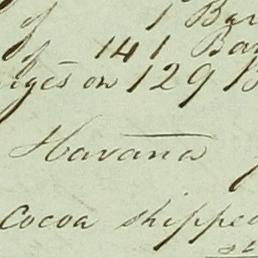 of 1 Bar
of 141 Bar
on 129 B
Havana
Cocoa shipped